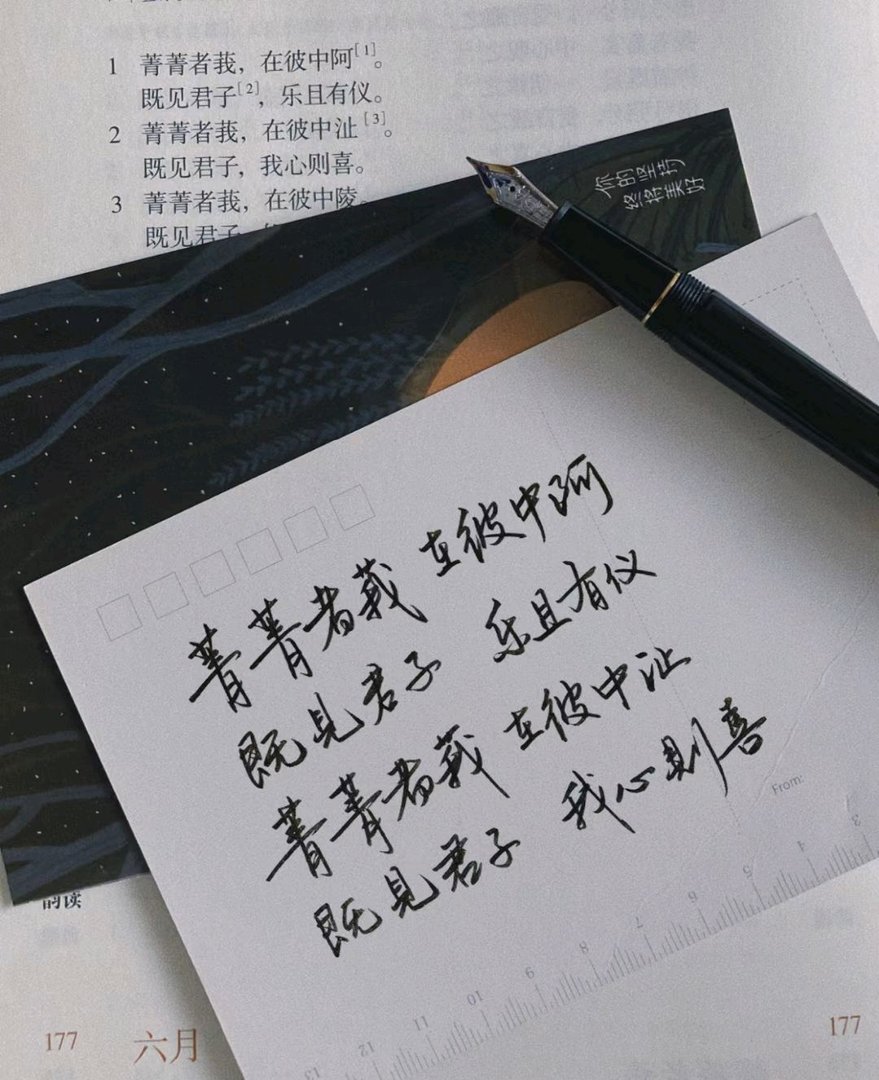 1 菁菁者莪，在彼中阿[1]。
既见君子[2]，乐且有仪。
2 菁菁者莪，在彼中沚[3]。
既见君子，我心则喜。
3 菁菁者莪，在彼中陵。
既见君子
你的坚持
终将美好
菁菁者莪 在彼中阿
既见君子 乐且有仪
菁菁者莪 在彼中沚
既见君子 我心则喜
From:
3 4 5 6 7 8 9 10 11 12 13
韵读
177 六月 177